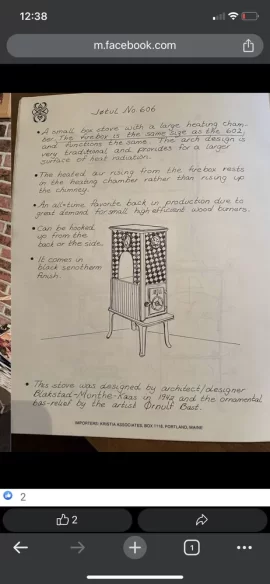 12:38
m.facebook.com
Jøtul No. 606
• A small box stove with a large heating cham-
ber. The firebox is the same size as the 602,
and functions the same. The arch design is
very traditional and provides for a larger
surface of heat radiation.
• The heated air rising from the firebox rests
in the heating chamber rather than rising up
the chimney.
• An all-time favorite back in production due to
great demand for small high efficient wood burners.
• Can be hooked
up from the
back or the side.
• It comes in
black senotherm
finish.
• This stove was designed by architect/designer
Blakstad-Monthe-Kaas in 1942 and the ornamental
bas-relief by the artist Ørnulf Bast.
IMPORTERS: KRISTIA ASSOCIATES, BOX 1118, PORTLAND, MAINE
2
2
1